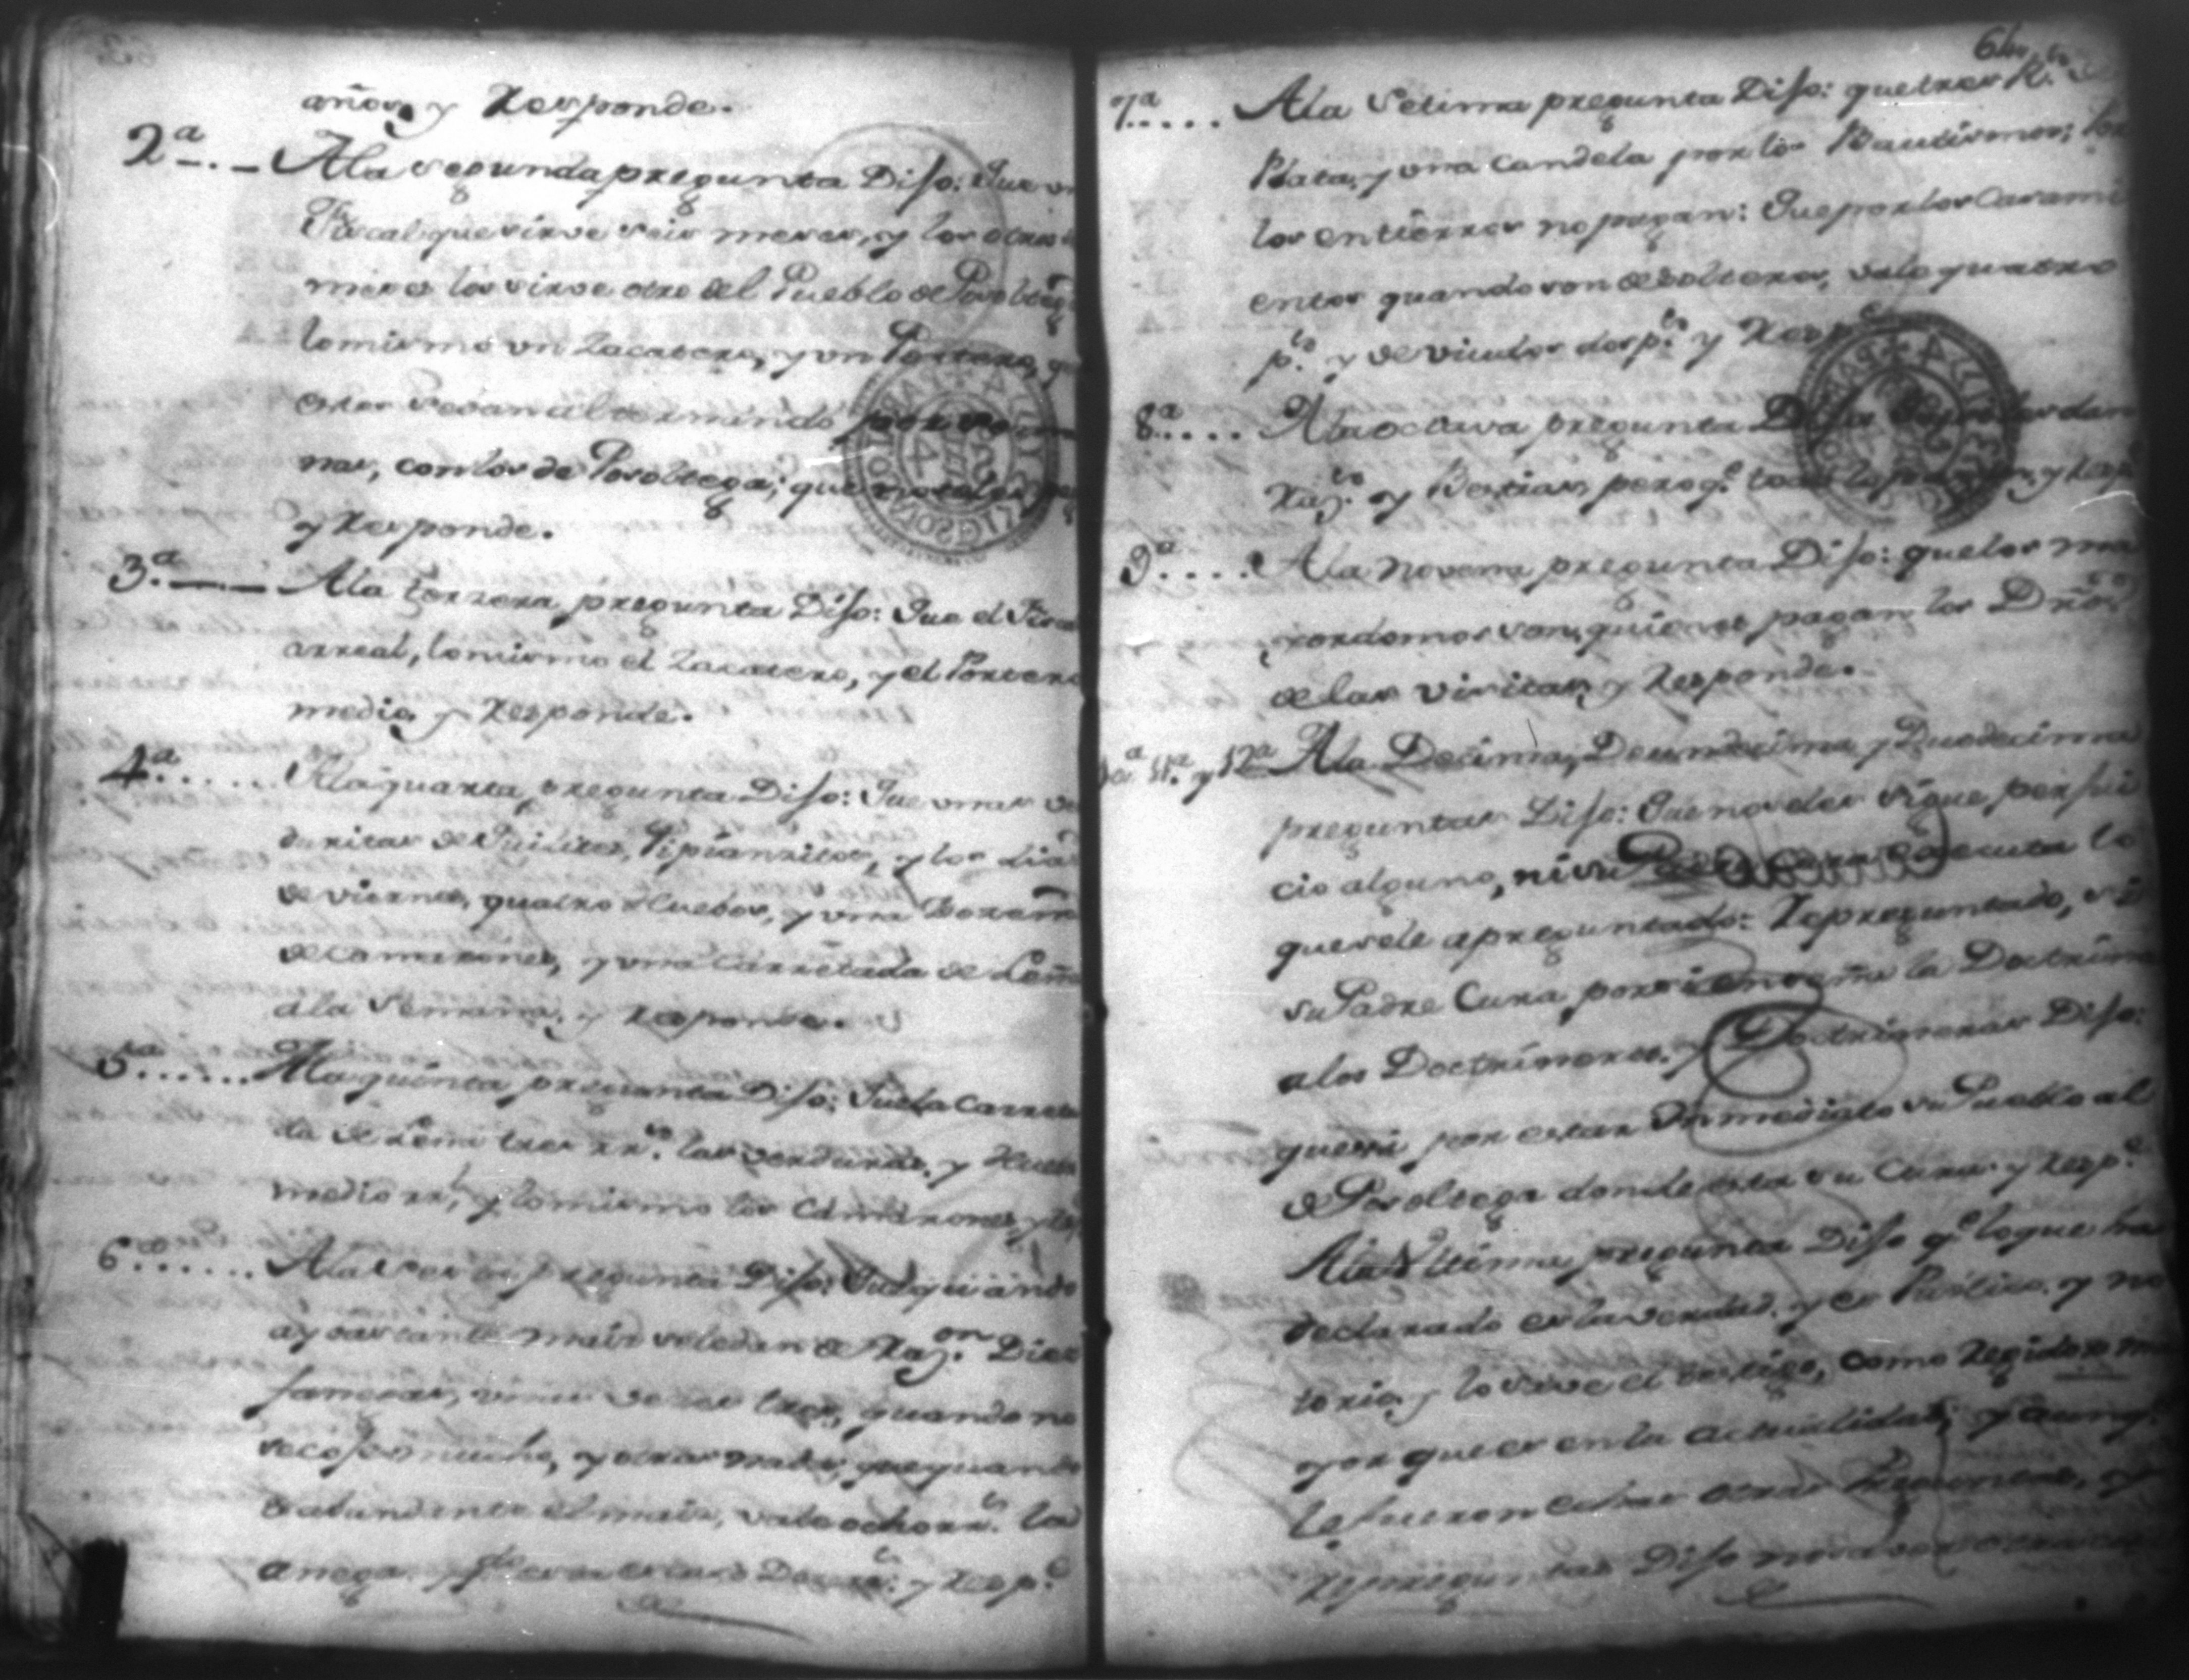 años, y Responde.
2ª Ala segunda pregunta Dijo: Que un
Fiscal que sirve seis meses, y los otros
meses los sirve otro del Pueblo de Posolteg
lo mismo un Zacatero, y un Portero, q
estos se dan alternando por sema
nas, con los de Posoltega; que no se les
y Responde.
3ª Ala terzera pregunta Dijo: Que el Fiscal
arreal, lo mismo el Zacatero, y el Portero
medio, y Responde.
4ª Ala quarta pregunta Dijo: Que unas ver
duritas de Quilites, Pipiansitos, y los dias
de viernes, quatro Huebos, y una
de camarones, y una Carretada de Leña
ala Semana, y Responde.
5ª Ala quinta pregunta Dijo: Que la Carreta
da de Leña tres rr.s las verduras, y Huebos
medio rr.l, y lo mismo los Camarones, y
6ª Ala Sesta pregunta Dijo: Que quando
ay bastante mais se le dan de Raz.on Diez
fanegas, unas veces tres, quando no
se coje mucho, y otras nada, que quando
es abundante el mais, vale ocho rr.s la
anega, y q.do y Resp.e
64
7ª Ala Setima pregunta Dijo: que tres R.s de
Plata, y una candela por los Bautismos; Por
los entierros no pagan: Que por los Casami
entos quando son de Solteros, vale quatro
p.s y de viudos dos p.s y Resp.e
8ª Ala octava pregunta Dijo: dan
y Bestias, pero q.e y Resp.
9ª Ala Novena pregunta Dijo: que los ma
yordomos son, quienes pagan los Dr̃os
de las visitas, y Responde.
10ª 11ª y 12ª Ala Decima, Deundecima, y Duodecima
preguntas Dijo: Que no se les sigue perjui
cio alguno, ni su Padre Cura ejecuta lo
que se le a preguntado: Repreguntado, si
su Padre Cura por si enseña la Doctrina
alos Doctrineros, y Doctrineras Dijo:
que si por estar Inmediato su Pueblo al
de Posoltega donde esta su Cura, y Resp.e
Ala Ultima pregunta Dijo q.e lo que ha
declarado es la verdad, y es Publico, y no
torio, y lo save el testigo, como Regidor ma
yor que es en la actualidad; y aunq.e
le fueron echas otras Preguntas, y
repreguntas Dijo no saver otra cosa